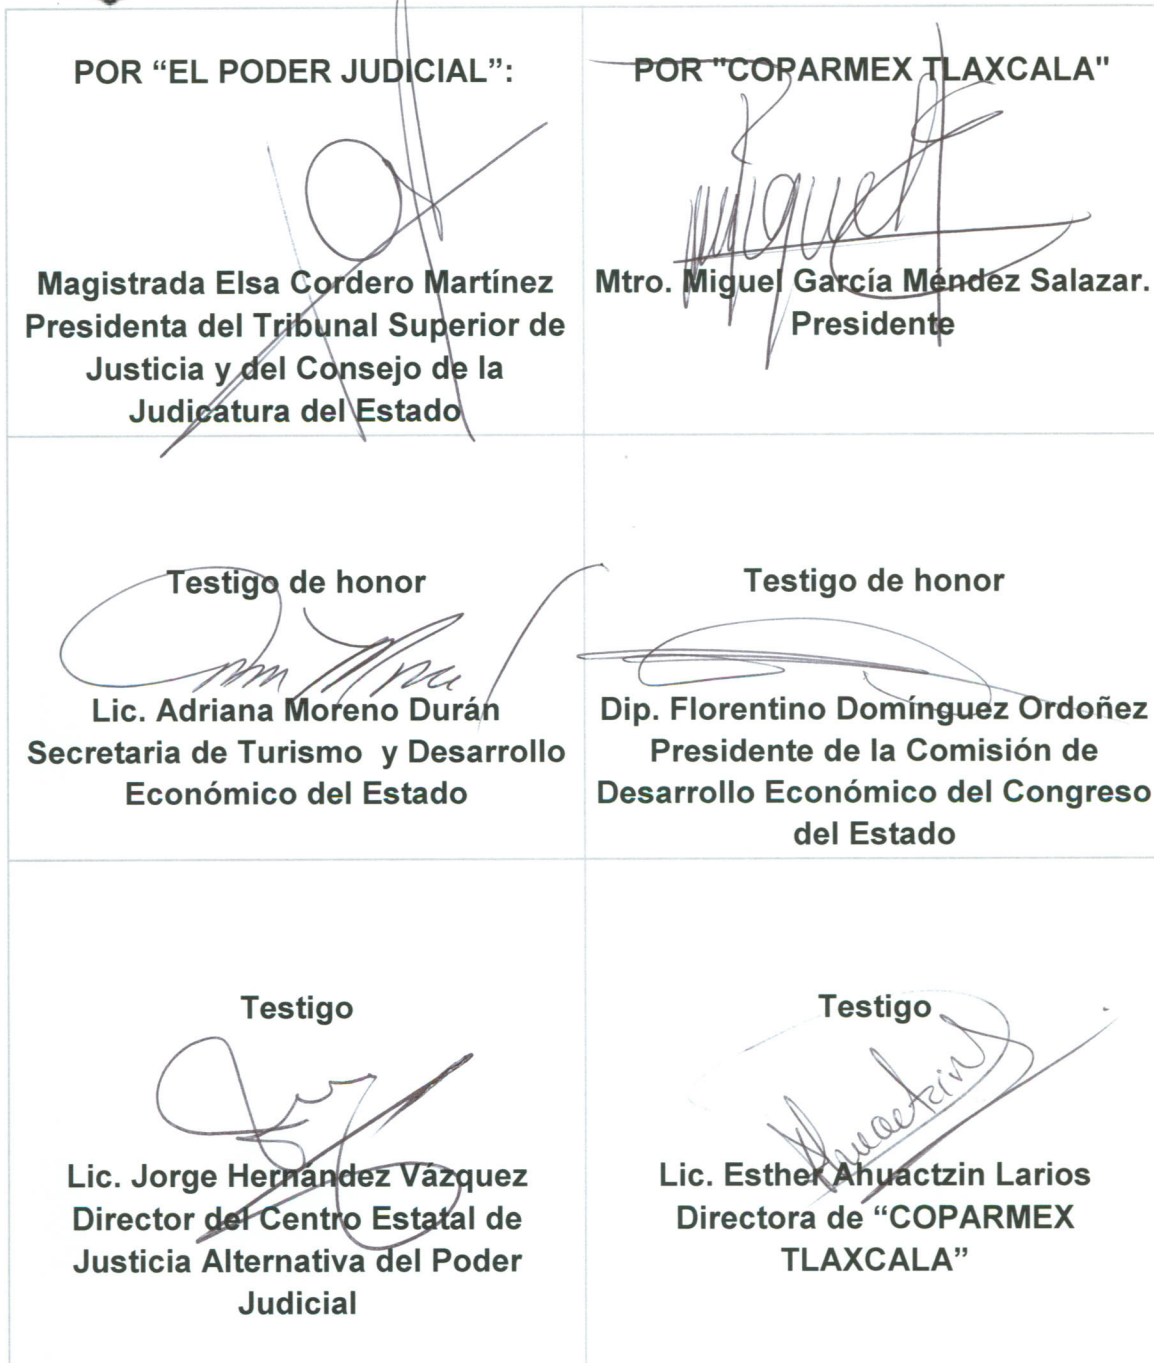 POR “EL PODER JUDICIAL”:
Magistrada Elsa Cordero Martínez
Presidenta del Tribunal Superior de
Justicia y del Consejo de la
Judicatura del Estado
POR "COPARMEX TLAXCALA"
Miguel
Mtro. Miguel García Méndez Salazar.
Presidente
Testigo de honor
Lic. Adriana Moreno Durán
Secretaria de Turismo y Desarrollo
Económico del Estado
Testigo de honor
Dip. Florentino Domínguez Ordoñez
Presidente de la Comisión de
Desarrollo Económico del Congreso
del Estado
Testigo
Lic. Jorge Hernández Vázquez
Director del Centro Estatal de
Justicia Alternativa del Poder
Judicial
Testigo
Ahuactzin
Lic. Esther Ahuactzin Larios
Directora de “COPARMEX
TLAXCALA”